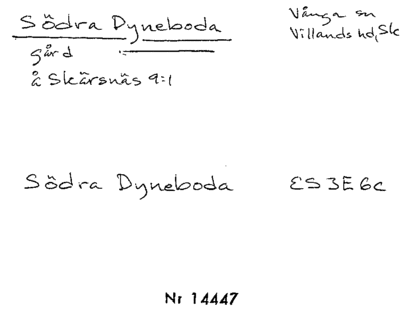 Södra Dyneboda
Vånga sn
Villands hd, Sk
gård
å Skärsnäs 9:1
Södra Dyneboda
ES 3E 6c
Nr 14447